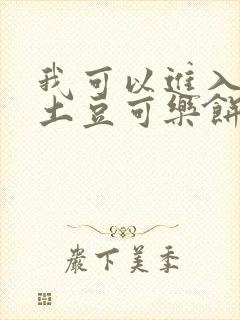 我可以進入
土豆可樂餅
嚴下美季